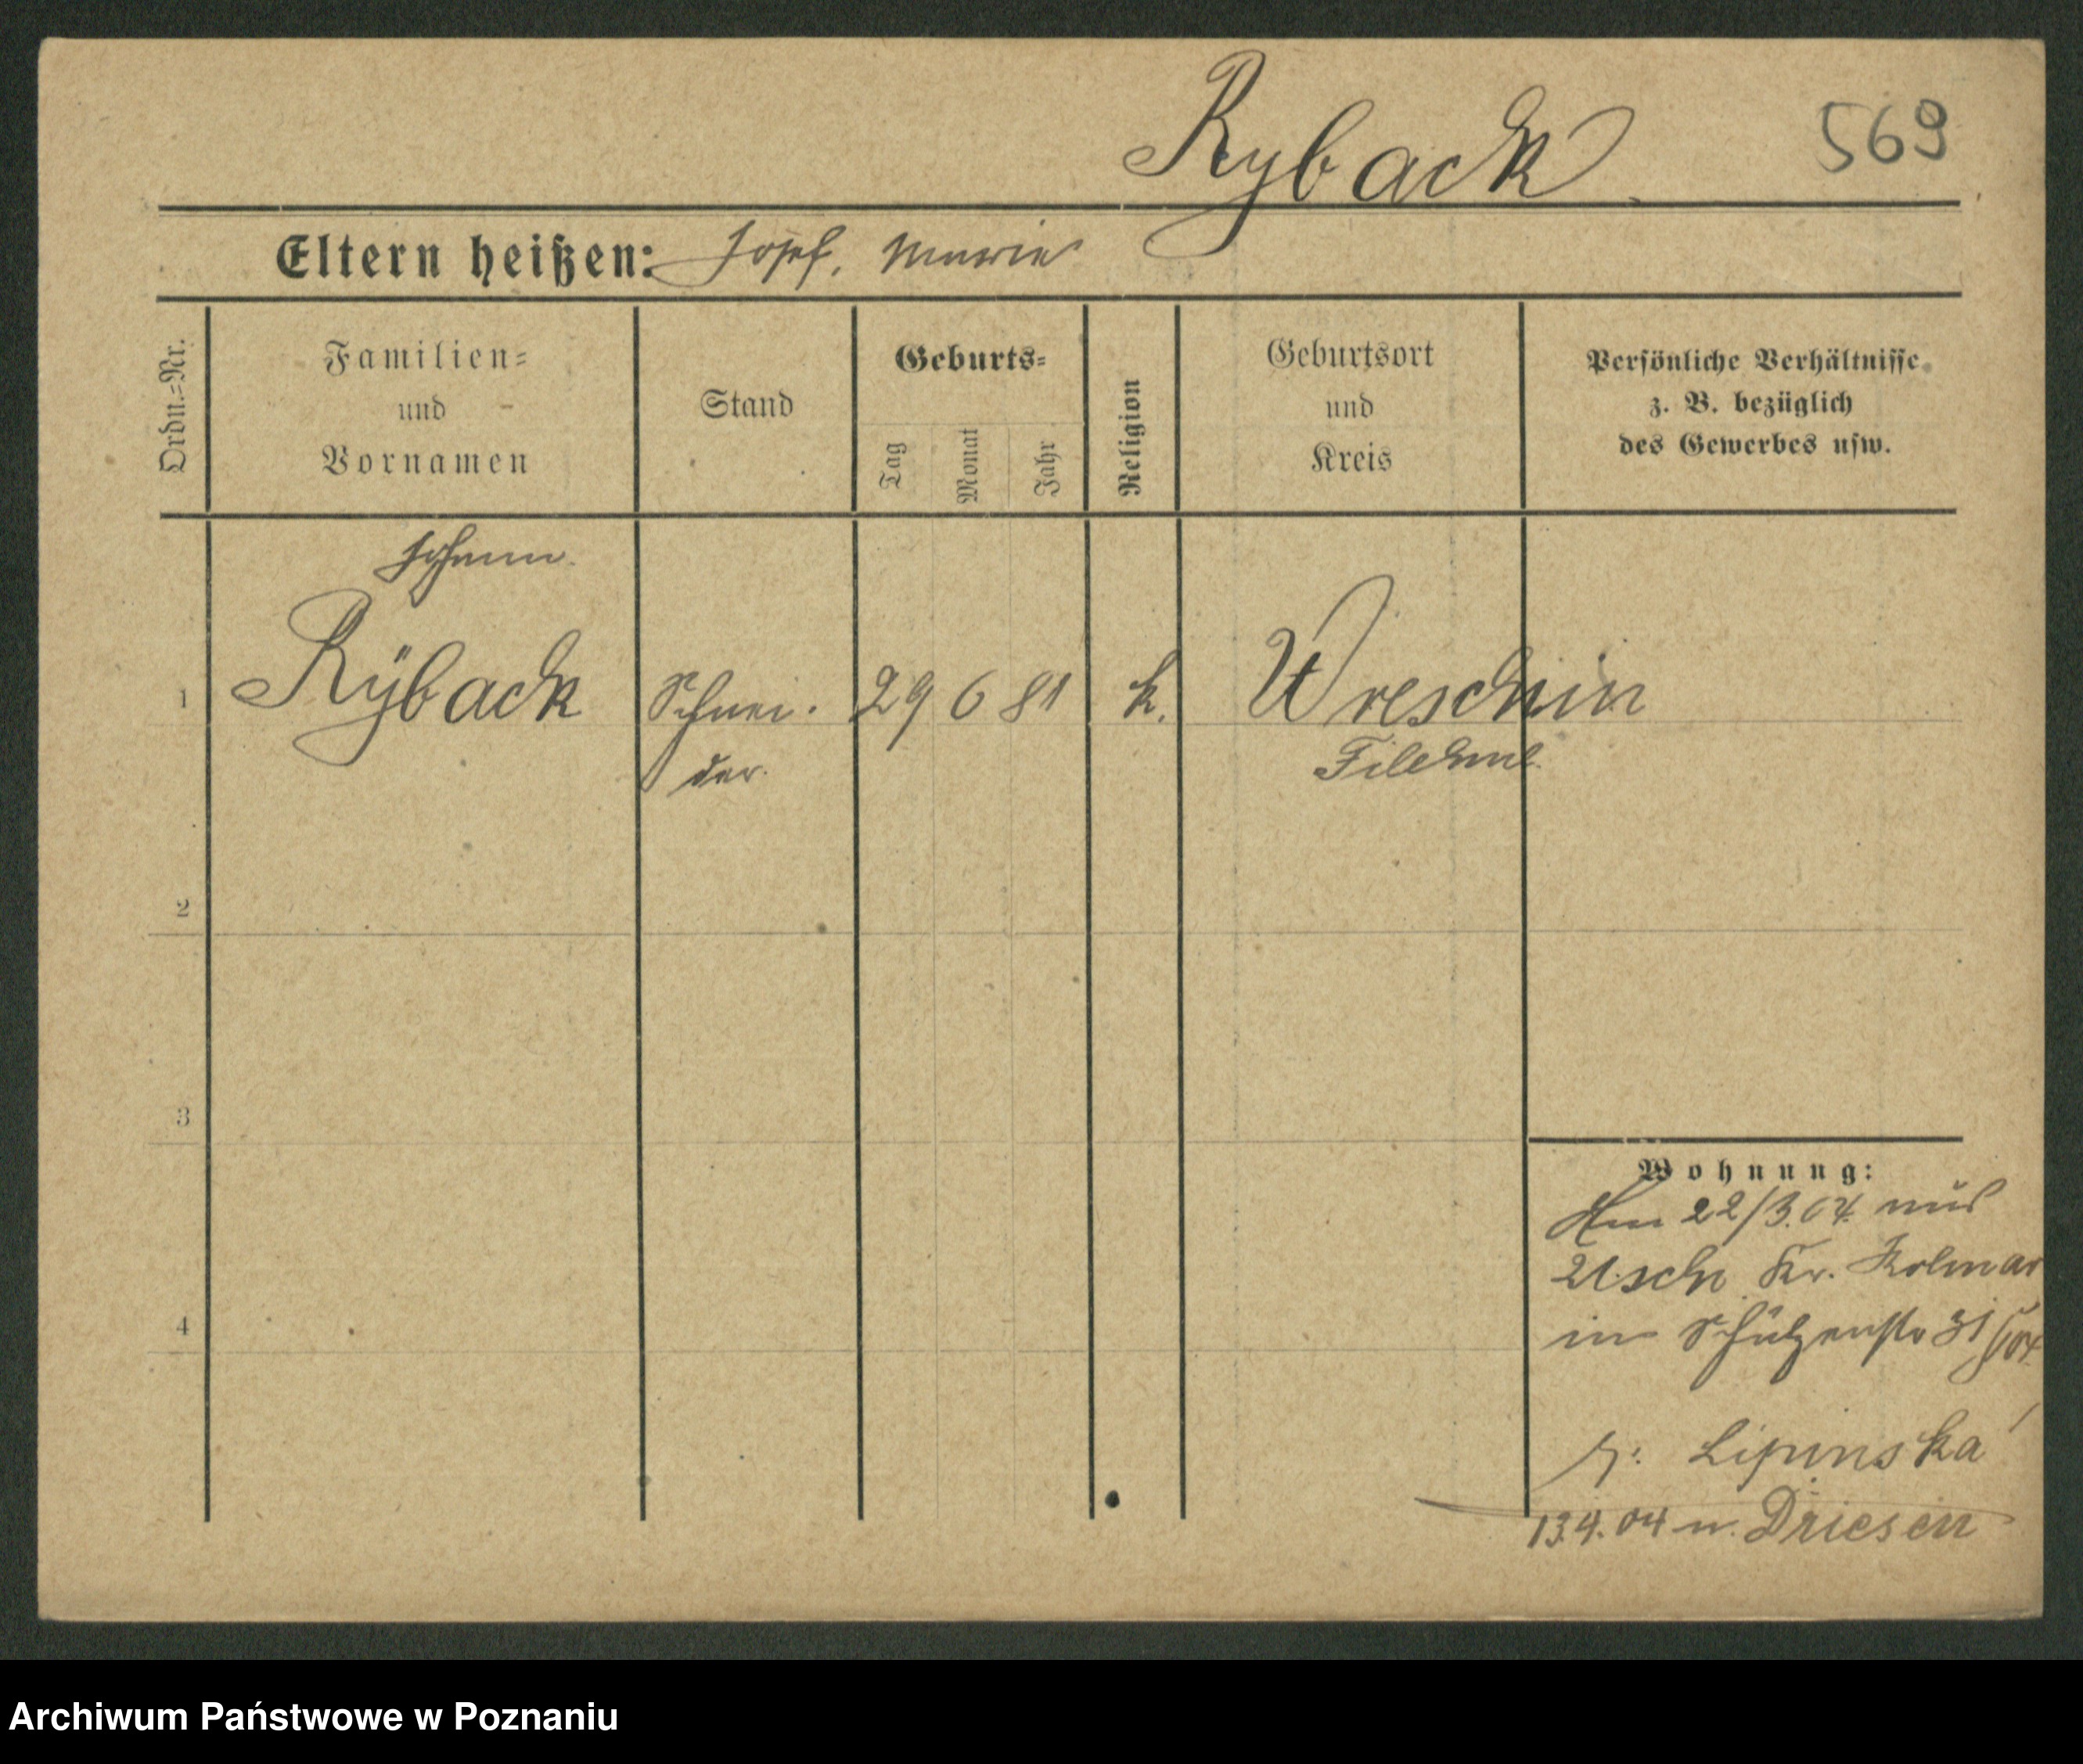 Ryback
569
Eltern heißen: Josef, Marie
Ordn.=Nr.
Familien=
und
Vornamen
Stand
Geburts=
Tag
Monat
Jahr
Religion
Geburtsort
und
Kreis
Persönliche Verhältnisse
z. B. bezüglich
des Gewerbes usw.
Johann
1 Rÿback Schnei. 29 6 81 k. Wreschin
der. Filehne
2
3
4
Wohnung:
Am 22/3.04. aus
Usch Kr. Kolmar
in Schützenstr 31
b: Lipinska
13.4.04 n. Driesen
Archiwum Państwowe w Poznaniu